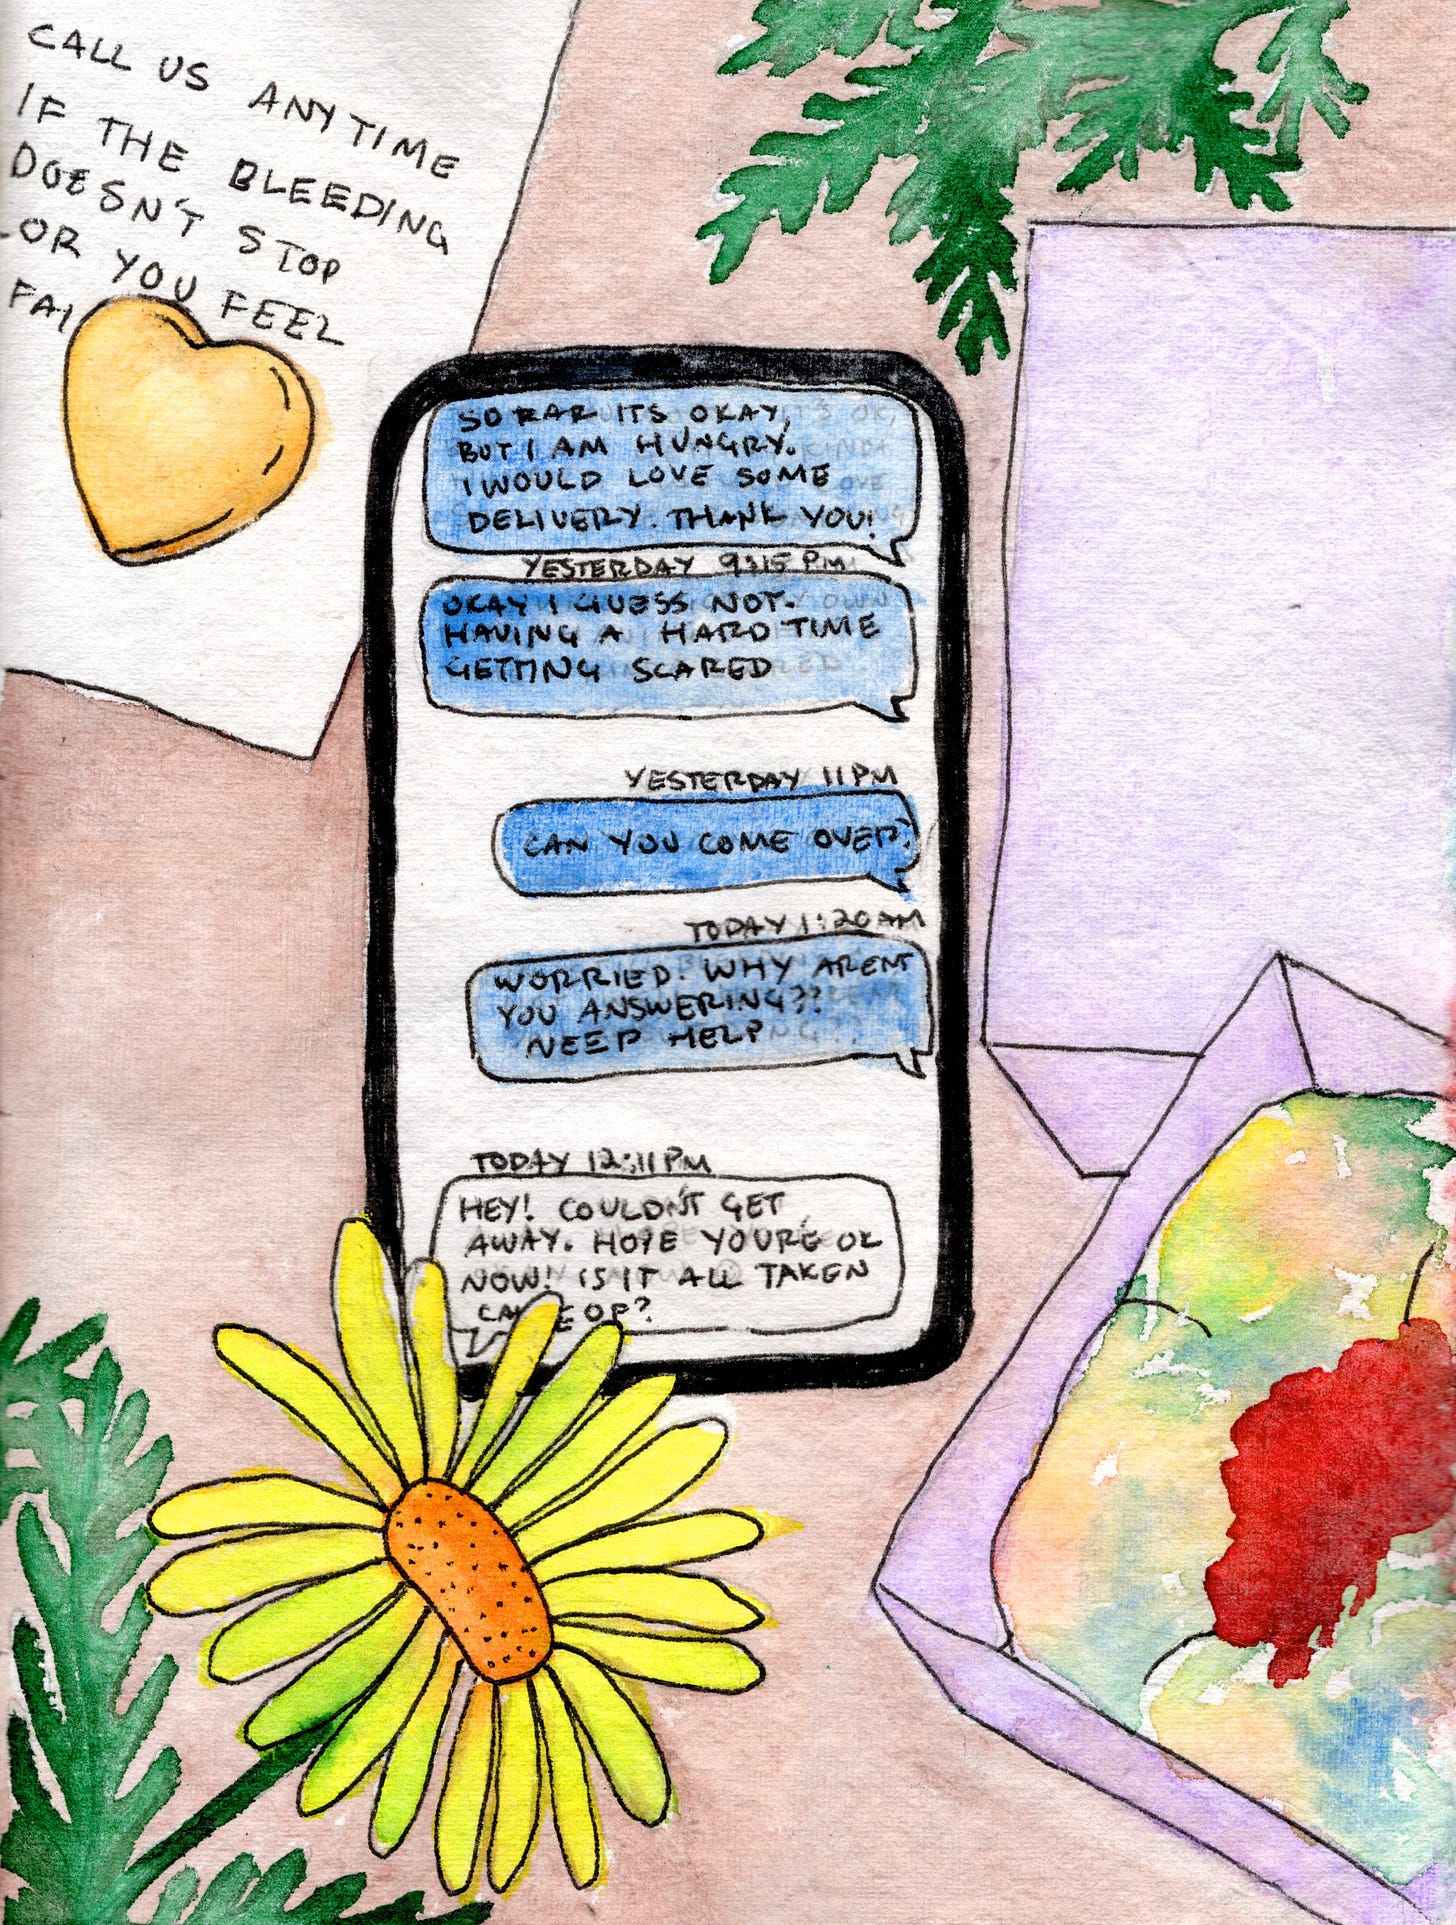 CALL US ANYTIME
IF THE BLEEDING
DOESN'T STOP
OR YOU FEEL
FAI
SO FAR ITS OKAY,
BUT I AM HUNGRY.
I WOULD LOVE SOME
DELIVERY. THANK YOU!
YESTERDAY 9:15 PM
OKAY I GUESS NOT.
HAVING A HARD TIME
GETTING SCARED
YESTERDAY 11 PM
CAN YOU COME OVER?
TODAY 1:20 AM
WORRIED. WHY ARENT
YOU ANSWERING??
NEED HELP
TODAY 12:11 PM
HEY! COULDN'T GET
AWAY. HOPE YOU'RE OK
NOW! IS IT ALL TAKEN
CA E OF?